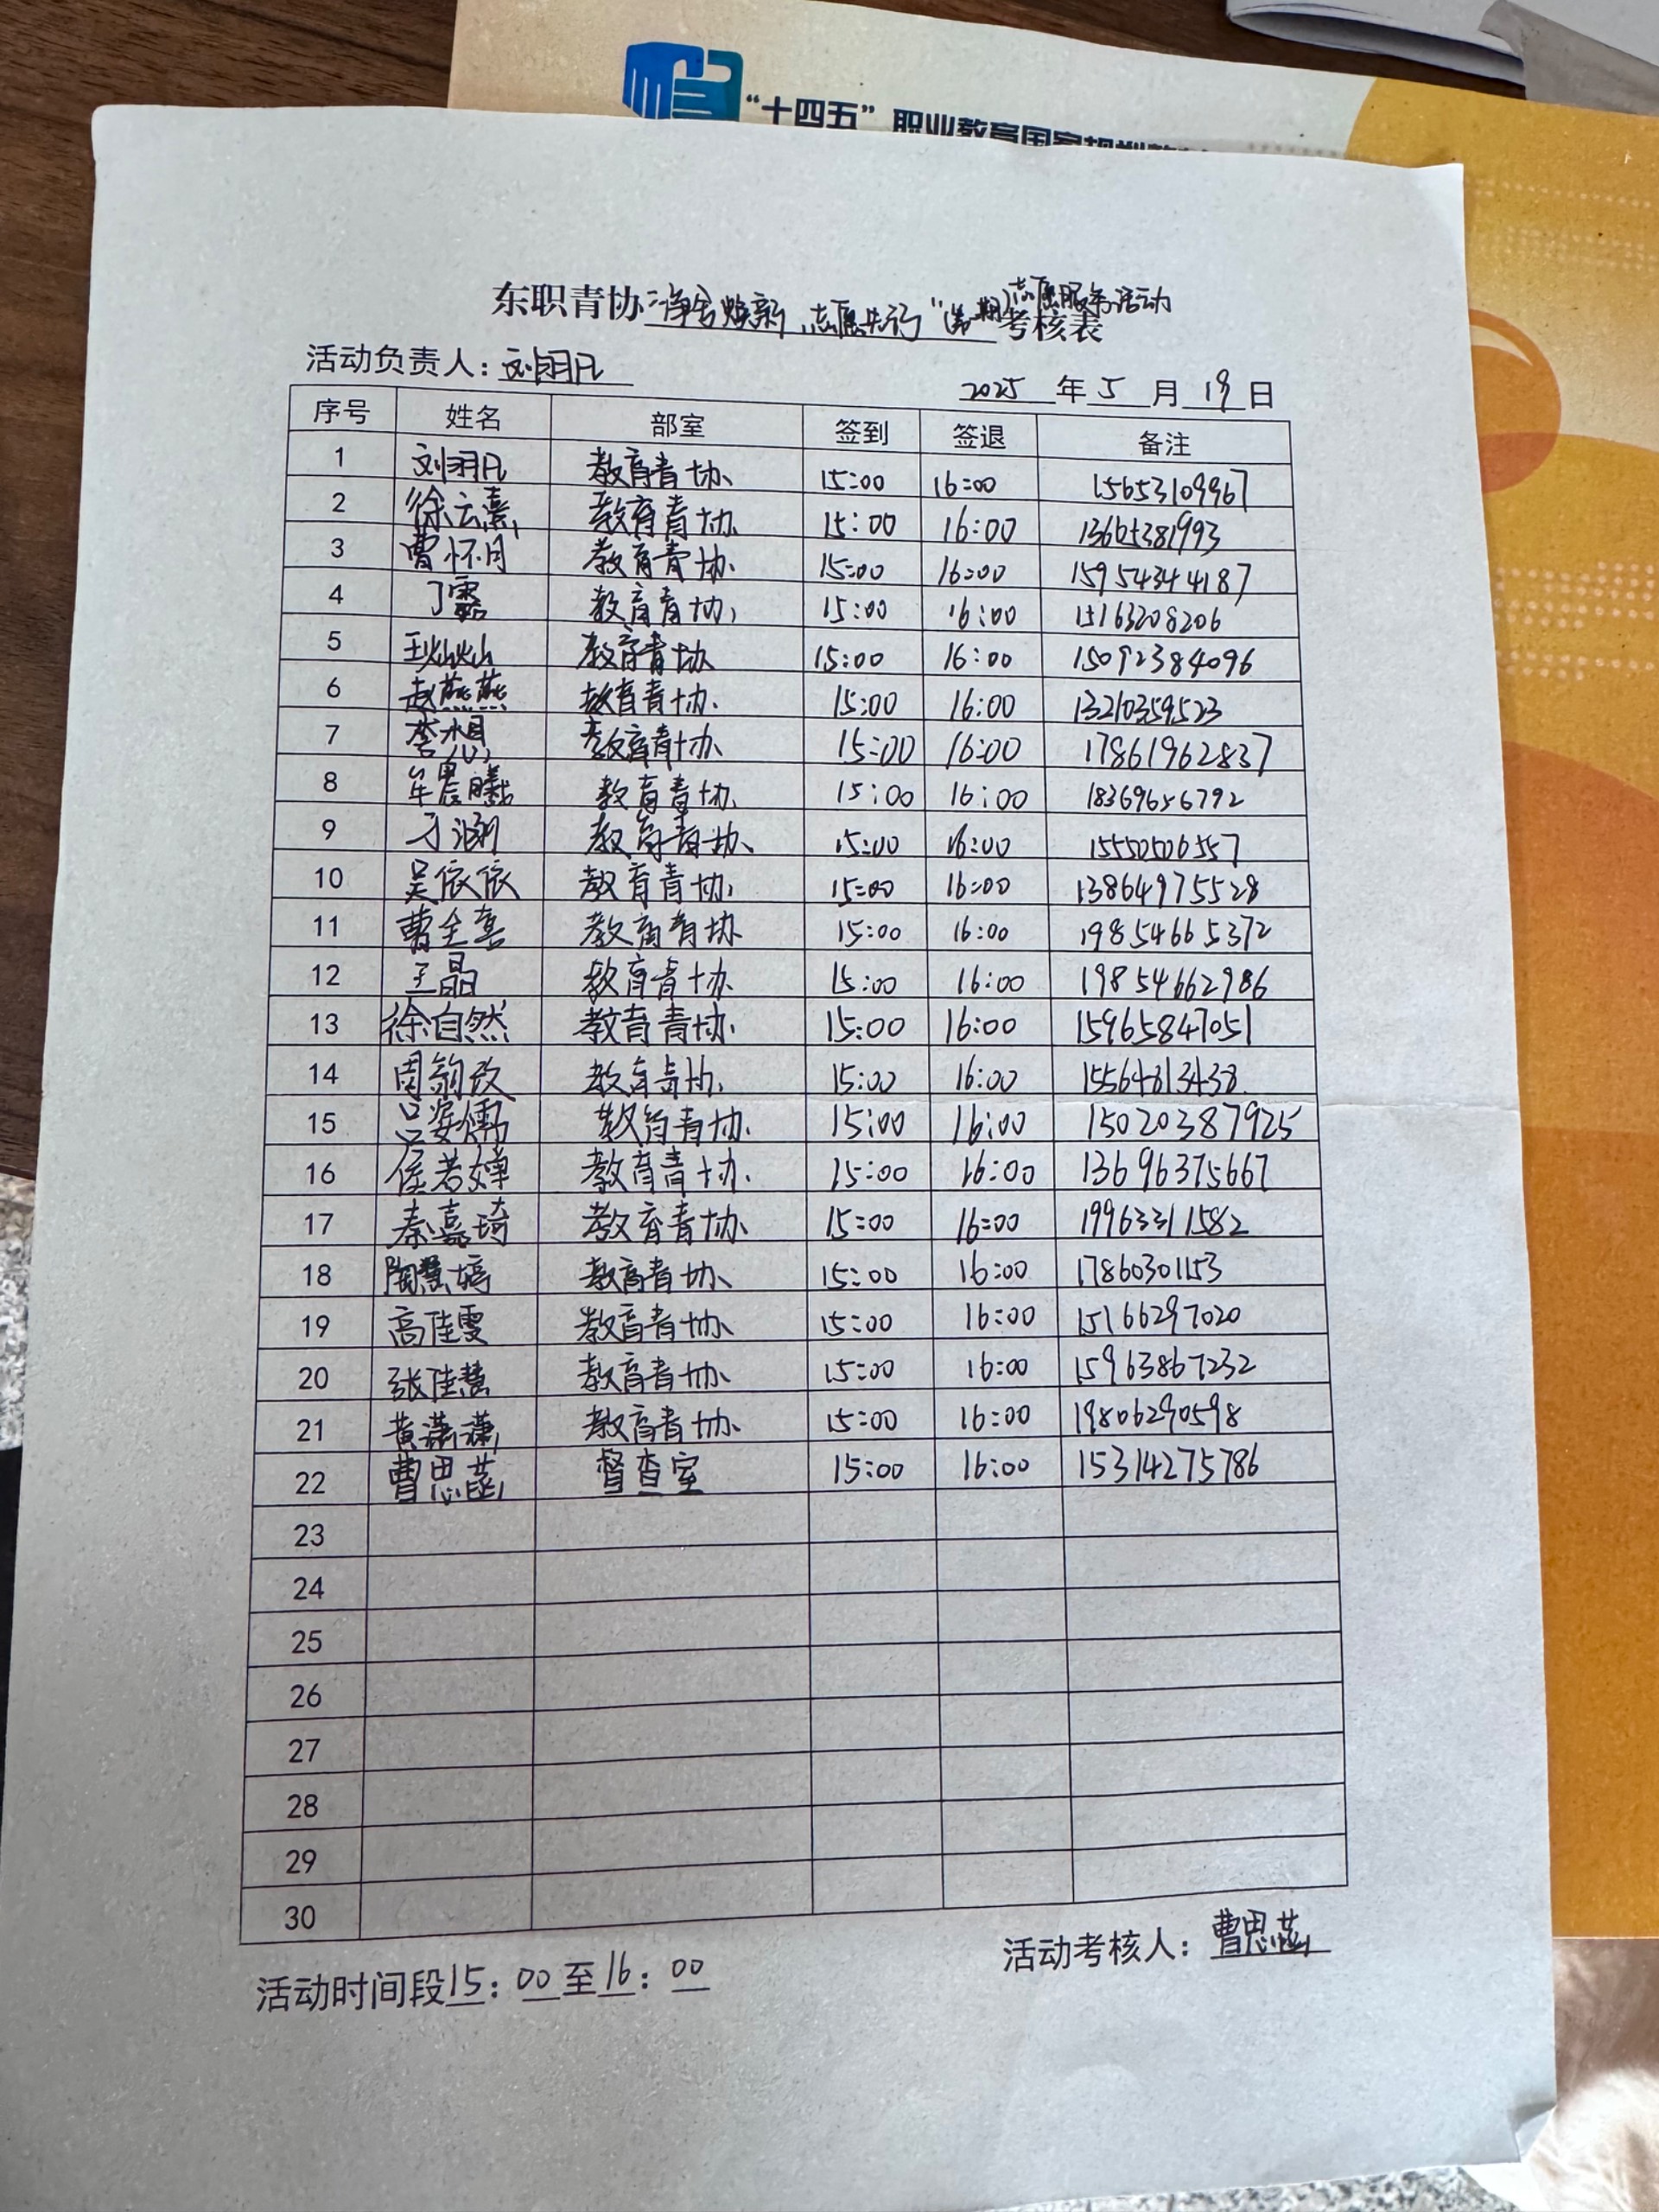 “十四五”职业教育国家规划教材
志愿服务活动
东职青协“净舍焕新，志愿先行”（第 期）考核表
活动负责人：刘羽凡
2025 年 5 月 19 日
序号 姓名 部室 签到 签退 备注
1 刘羽凡 教育青协 15:00 16:00 15653109967
2 徐云熹 教育青协 15:00 16:00 13605381993
3 曹怀月 教育青协 15:00 16:00 15954344187
4 丁露 教育青协 15:00 16:00 15163208206
5 王灿灿 教育青协 15:00 16:00 15092384096
6 赵燕燕 教育青协 15:00 16:00 13210359523
7 李 教育青协 15:00 16:00 17861962837
8 牟晨曦 教育青协 15:00 16:00 18369656792
9 刁涵 教育青协 15:00 16:00 15550506557
10 吴依依 教育青协 15:00 16:00 13864975528
11 曹全喜 教育青协 15:00 16:00 19854665372
12 王晶 教育青协 15:00 16:00 19854662986
13 徐自然 教育青协 15:00 16:00 15965847051
14 周 教育青协 15:00 16:00 15564813438
15 吕姿儒 教育青协 15:00 16:00 15020387925
16 侯若婵 教育青协 15:00 16:00 13696375667
17 秦嘉琦 教育青协 15:00 16:00 19963311582
18 陶慧婷 教育青协 15:00 16:00 17860301153
19 高佳雯 教育青协 15:00 16:00 15166297020
20 张佳慧 教育青协 15:00 16:00 15963867232
21 黄潇潇 教育青协 15:00 16:00 19806290598
22 曹思菡 督查室 15:00 16:00 15314275786
23
24
25
26
27
28
29
30
活动考核人：曹思菡
活动时间段15：00至16：00